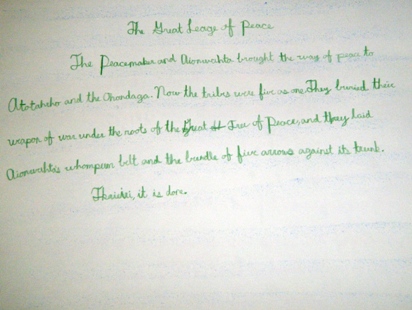 The Great Leage of Peace
The Peacemaker and Aionwahta brought the way of peace to
Atotahrho and the Onondaga. Now the tribes were five as one. They buried their
weapon of war under the roots of the Great Tree of Peace, and they laid
Aionwahta's whompum belt and the bundle of five arrows against its trunk.
it is done.